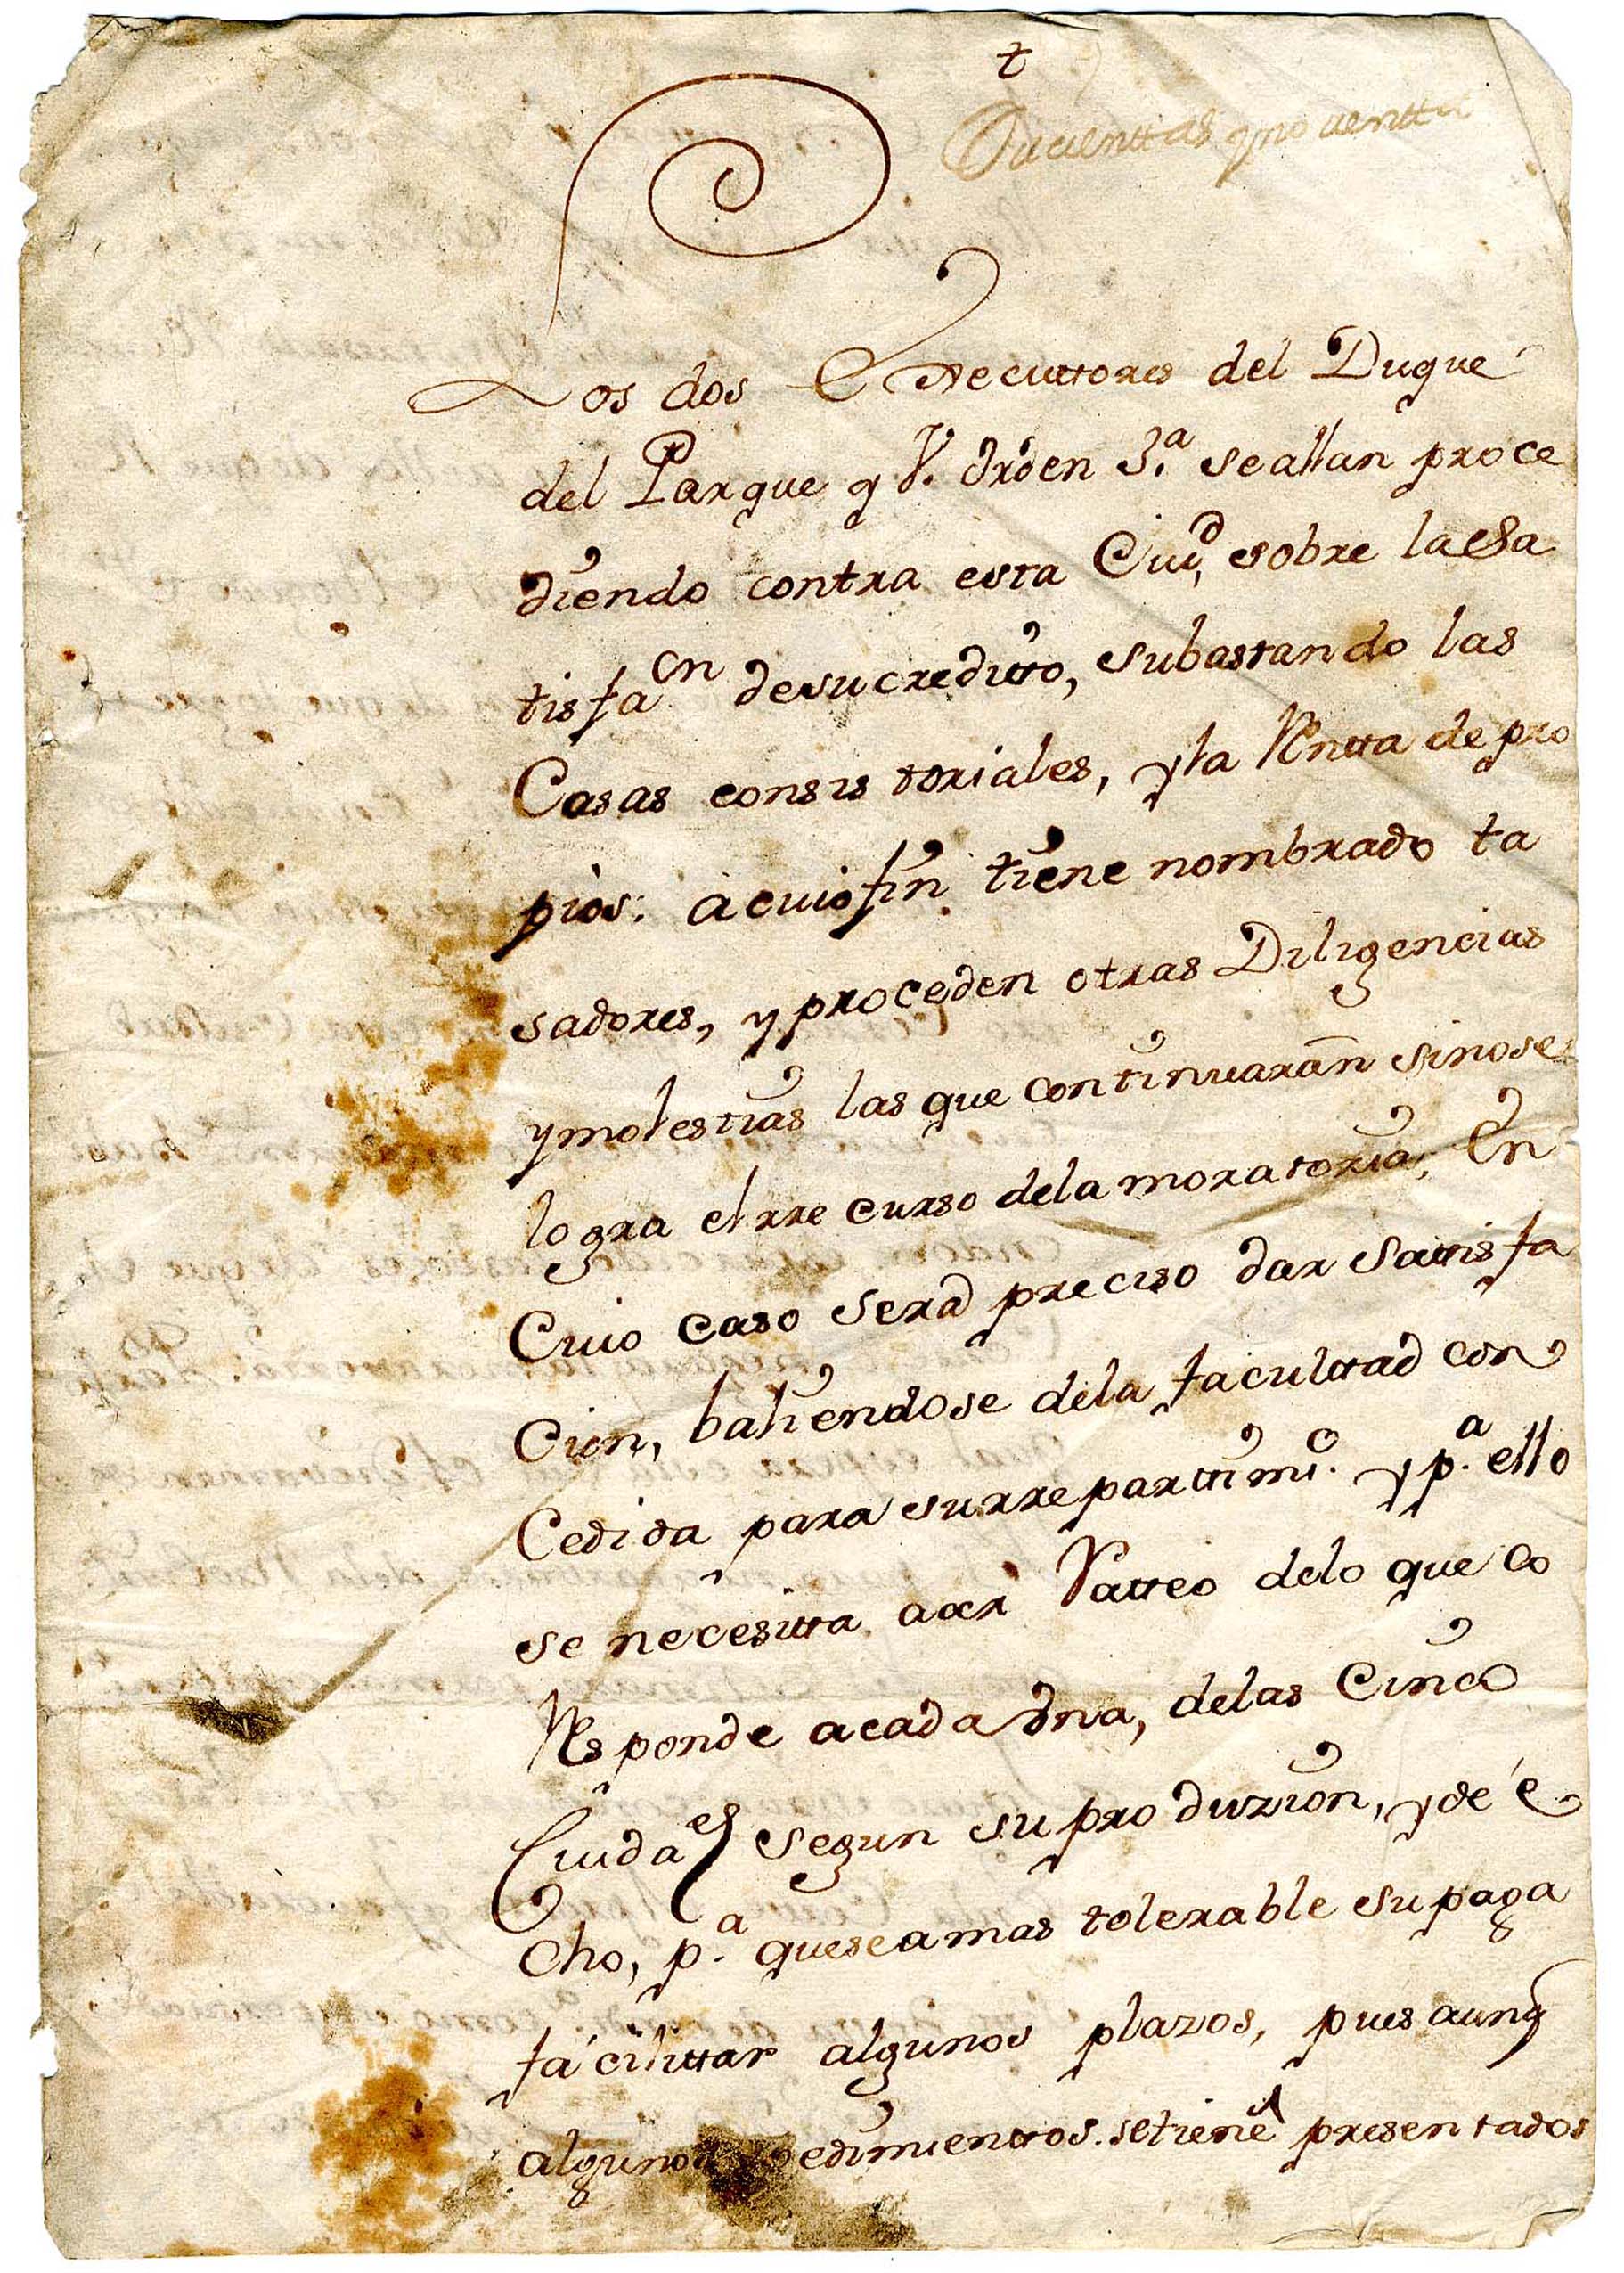 t
Ducienttas y nouentta
Los dos Executtores del Duque
del Parque y V. Orden 3.ª se allan proce
diendo contra esta Ciud, sobre la Sa
tisfaon de su creditto, subastando las
Casas consistoriales, y la Rentta de pro
pios: a cuio fin tiene nombrado ta
sadores, y proceden otras Diligencias
y molestias las que continuaran sino se
logra el rrecurso de la moratoria; En
Cuio caso será preciso dar sattisfa
Cion, baliendose de la facultad con
Cedida para su rrepartimto. y p.ª ello
se necesitta acer Patteo de lo que co
Responde a cada Vna, de las Cinco
Ciudaes segun su produzion, y de é
cho, p.ª que sea mas tolerable su paga
fácilittar algunos plazos, pues aunq
algunos pedimienttos se tiene presentados